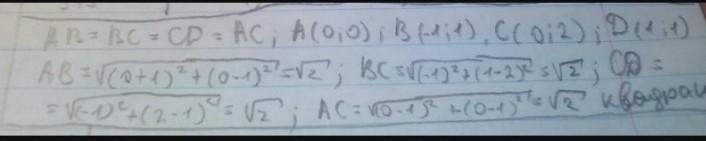 AB = BC = CD = AC; A(0;0); B(-1;1), C(0;2); D(1;1)
AB = √((0+1)²+(0-1)²) = √2; BC = √((-1)²+(1-2)²) = √2; CD =
= √((-1)²+(2-1)²) = √2; AC = √((0-1)²+(0-1)²) = √2 квадрат